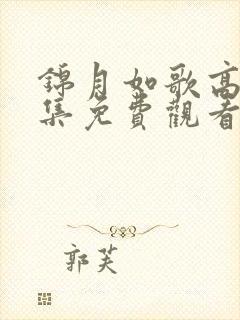 錦月如歌高
集免費觀看
郭芙